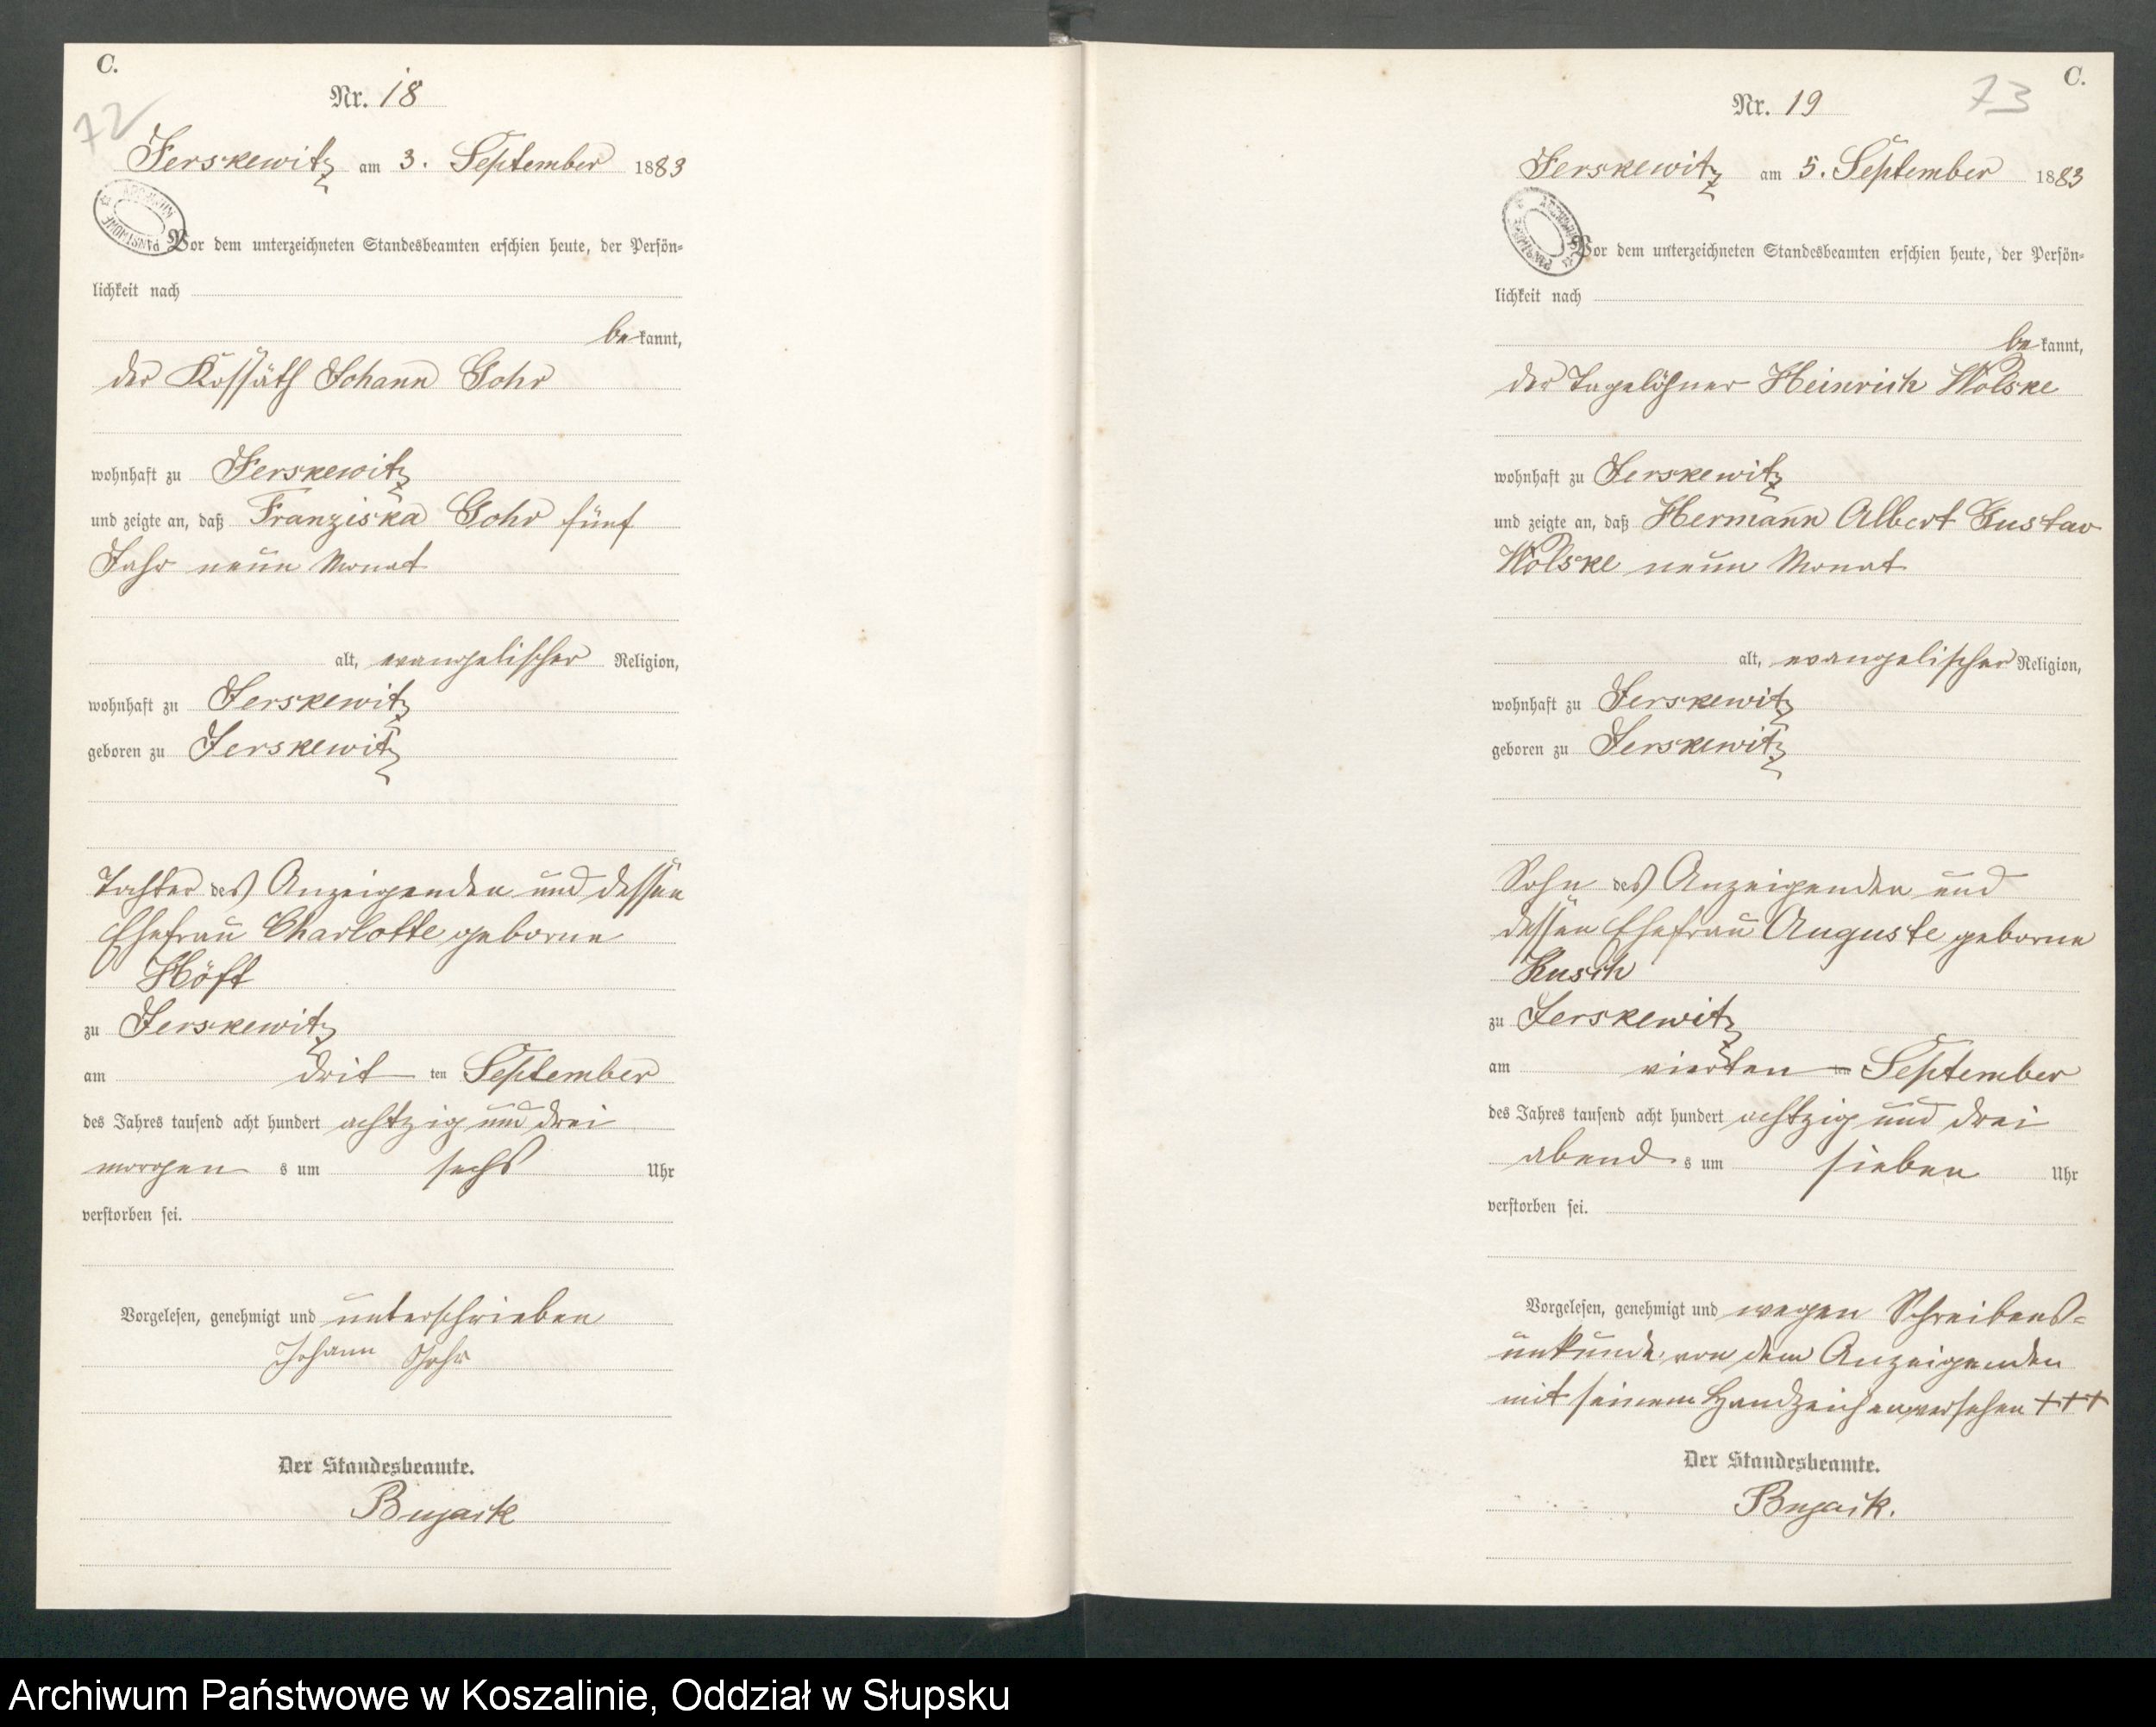 C.
Nr. 18
72
Jerskewitz am 3. September 1883
Vor dem unterzeichneten Standesbeamten erschien heute, der Persön-
lichkeit nach
bekannt,
der Kossäth Johann Gohr
wohnhaft zu Jerskewitz
und zeigte an, daß Franziska Gohr fünf
Jahr neun Monat
alt, evangelischer Religion,
wohnhaft zu Jerskewitz
geboren zu Jerskewitz
Tochter des Anzeigenden und dessen
Ehefrau Charlotte geborne
Höft
zu Jerskewitz
am drit ten September
des Jahres tausend acht hundert achtzig und drei
morgen s um sechs Uhr
verstorben sei.
Vorgelesen, genehmigt und unterschrieben
Johann Gohr
Der Standesbeamte.
Bujack
C.
Nr. 19
73
Jerskewitz am 5. September 1883
Vor dem unterzeichneten Standesbeamten erschien heute, der Persön-
lichkeit nach
bekannt,
der Tagelöhner Heinrich Wolske
wohnhaft zu Jerskewitz
und zeigte an, daß Hermann Albert Gustav
Wolske neun Monat
alt, evangelischer Religion,
wohnhaft zu Jerskewitz
geboren zu Jerskewitz
Sohn des Anzeigenden und
dessen Ehefrau Auguste geborne
Kusch
zu Jerskewitz
am vierten ten September
des Jahres tausend acht hundert achtzig und drei
abend s um sieben Uhr
verstorben sei.
Vorgelesen, genehmigt und wegen Schreibens-
unkunde von dem Anzeigenden
mit seinem Handzeichen versehen +++
Der Standesbeamte.
Bujack.
Archiwum Państwowe w Koszalinie, Oddział w Słupsku